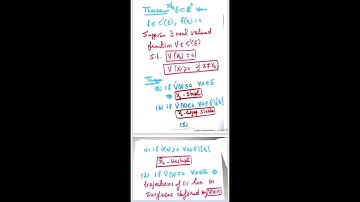 Theorem: If E ⊂ Rⁿ
f ∈ C'(E), f(x₀) =
Suppose ∃ real valued
function V ∈ C'(E)
s.t. V(x₀) = 0
V(x) > 0 if x ≠ x₀
Then
(a) if V̇(x) ≤ 0 ∀ x ∈ E
⇒ x₀ - stable
(b) if V̇(x) < 0 ∀ x ∈ E\{x₀}
x₀ - asymp stable
(c) if V̇(x) > 0 ∀ x ∈ E\{x₀}
x₀ - unstable
(d) if V̇(x) = 0 ∀ x ∈ E ⇒
trajectories of (1) lie on
surfaces defined by